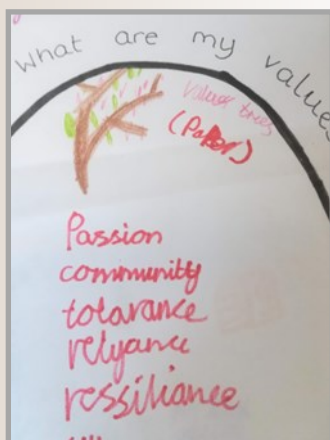 what are my values
values trees
(Paper)
Passion
community
tolarance
relyance
ressiliance